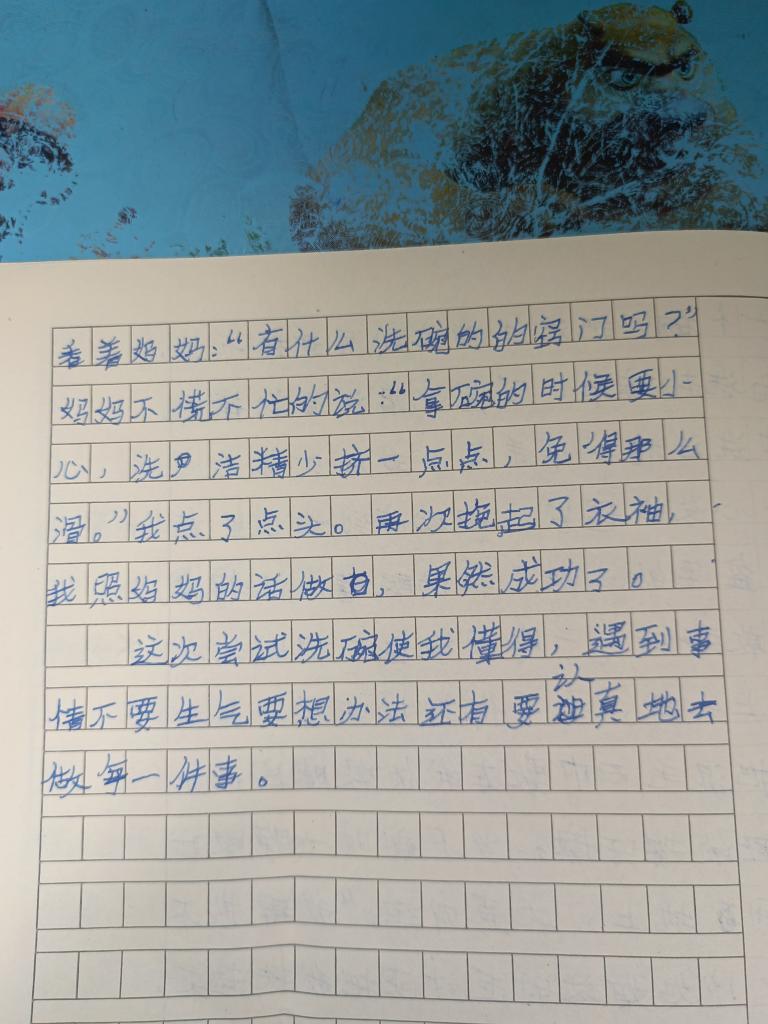 看着妈妈：“有什么洗碗的的窍门吗？”
妈妈不慌不忙的说：“拿碗的时候要小
心，洗洁精少挤一点点，免得那么
滑。”我点了点头。再次挽起了衣袖，
我照妈妈的话做，果然成功了。
这次尝试洗碗使我懂得，遇到事
情不要生气要想办法还有要认真地去
做每一件事。